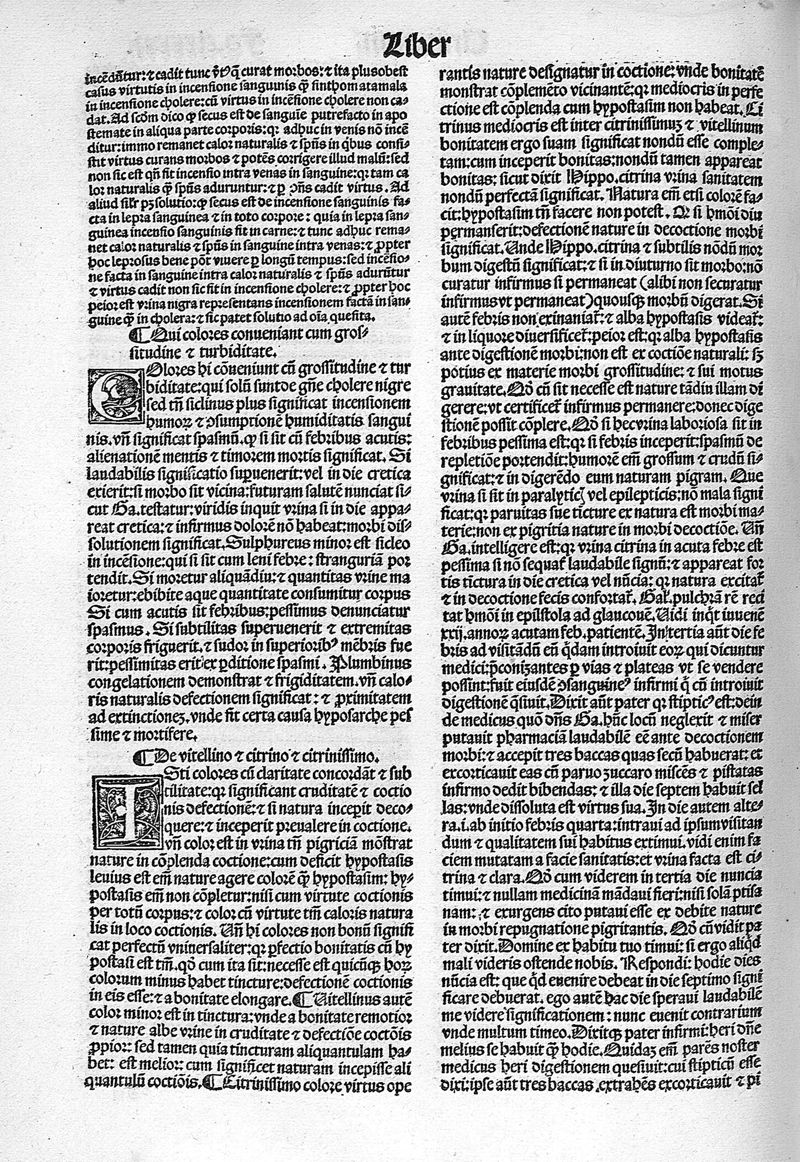 Liber
incēdūtur: ⁊ cadit tunc v̄t⁹ q̄ curat morbos: ⁊ ita plus obest
casus virtutis in incensione sanguinis q̄ sinthomata mala
in incensione cholere: cū virtus in incēsione cholere non ca⸗
dat. Ad scōm dico ꝙ secus est de sanguīe putrefacto in apo
stemate in aliqua parte corporis: qꝛ adhuc in venis nō incē
ditur: immo remanet calor naturalis ⁊ sp̄us in q̄bus consi⸗
stit virtus curans morbos ⁊ potēs corrigere illud malū: sed
non sic est qn̄ fit incensio intra venas in sanguine: qꝛ tam ca
lor naturalis q̄ sp̄us aduruntur: ⁊ ꝑ ↄn̄s cadit virtus. Ad
aliud sil̄r pꝫ solutio: ꝙ secus est de incensione sanguinis fa⸗
cta in lepra sanguinea ⁊ in toto corpore: quia in lepra san⸗
guinea incensio sanguinis fit in carne: ⁊ tunc adhuc rema⸗
net calor naturalis ⁊ sp̄us in sanguine intra venas: ⁊ ꝓpter
hoc leprosus bene pōt viuere ꝑ longū tempus: sed incēsio⸗
ne facta in sanguine intra calor naturalis ⁊ sp̄us adurūtur
⁊ virtus cadit non sic fit in incensione cholere: ⁊ ꝓpter hoc
peior est vrina nigra representans incensionem factā in san⸗
guine q̄ in cholera: ⁊ sic patet solutio ad oīa quesita.
¶ Qui colores conueniant cum gros⸗
situdine ⁊ turbiditate.
COlores hi cōueniunt cū grossitudine ⁊ tur
biditate: qui solū sunt de gn̄e cholere nigre
sed tm̄ siclinus plus significat incensionem
humoꝝ ⁊ ↄsumptionē humiditatis sangui
nis. vn̄ significat spasmū. ꝙ si sit cū febribus acutis:
alienationem mentis ⁊ timorem mortis significat. Si
laudabilis significatio superuenerit: vel in die cretica
exierit: si morbo sit vicina: futuram salutē nunciat si⸗
cut Ga. testatur: viridis inquit vrina si in die appa⸗
reat cretica: ⁊ infirmus dolorē nō habeat: morbi dis⸗
solutionem significat. Sulphureus minor est sicleo
in incēsione: qui si sit cum leni febre: stranguriā por
tendit. Si moretur aliquādiu: ⁊ quantitas vrine ma
ioretur: ebibite aque quantitate consumitur corpus
Si cum acutis sit febribus: pessimus denunciatur
spasmus. Si subtilitas superuenerit ⁊ extremitas
corporis friguerit. ⁊ sudor in superiorib⁹ mēbris fue
rit: pessimitas erit ex ꝑditione spasmi. Plumbinus
congelationem demonstrat ⁊ frigiditatem. vn̄ calo⸗
ris naturalis defectionem significat: ⁊ ꝓximitatem
ad extinctionez. vnde fit certa causa hyposarche pes
sime ⁊ mortifere.
¶ De vitellino ⁊ citrino ⁊ citrinissimo.
ISti colores cū claritate concordāt ⁊ sub
tilitate: qꝛ significant cruditatē ⁊ coctio
nis defectionē: ⁊ si natura inceperit deco⸗
quere: ⁊ inceperit preualere in coctione.
vn̄ color est in vrina tm̄ pigriciā mōstrat
nature in cōplenda coctione: cum deficit hypostasis
leuius est em̄ nature agere colorē q̄ hypostasim: hy⸗
postasis em̄ non completur: nisi cum virtute coctionis
per totū corpus: ⁊ color cū virtute tm̄ caloris natura
lis in loco coctionis. Vn̄ hi colores non bonū signifi
cat perfectū vniuersaliter: qꝛ ꝑfectio bonitatis cū hy
postasi est tm̄. qd̄ cum ita sit: necesse est quicūqꝫ hoꝝ
colorum minus habet tincture: defectionē coctionis
in eis esse: ⁊ a bonitate elongare. ¶ Vitellinus autē
color minor est in tinctura: vnde a bonitate remotior
⁊ nature albe vrine in cruditate ⁊ defectiōe coctōis
ꝓpior: sed tamen quia tincturam aliquantulam ha⸗
bet: est melior: cum significet naturam incepisse ali
quantulū coctiōis. ¶ Citrinissimo colore virtus ope
rantis nature designatur in coctione: vnde bonitatē
monstrat cōplemēto vicinantē: qꝛ mediocris in perfe
ctione est complenda cum hypostasim non habeat. Ci
trinus mediocris est inter citrinissimuꝫ ⁊ vitellinum
bonitatem ergo suam significat nondū esse comple⸗
tam: cum inceperit bonitas: nondū tamen appareat
bonitas: sicut dixit Hippo. citrina vrina sanitatem
nondū perfectā significat. Natura em̄ etsi colorē fa⸗
cit: hypostasim tn̄ facere non potest. Q si hm̄oi diu
permanserit: defectionē nature in decoctione morbi
significat. Unde Hippo. citrina ⁊ subtilis nōdū mor
bum digestū significat: ⁊ si in diuturno sit morbo: nō
curatur infirmus si permaneat (alibi non securatur
infirmus vt permaneat) quousqꝫ morbū digerat. Si
autē febris non exinaniat̄: ⁊ alba hypostasis videat̄:
⁊ in liquore diuersificet̄: peior est: qꝛ alba hypostasis
ante digestionē morbi: non est ex coctiōe naturali: sꝫ
potius ex materie morbi grossitudine: ⁊ sui motus
grauitate. Qd̄ cū sit necesse est nature tādiu illam di
gerere: vt certificet̄ infirmus permanere: donec dige
stionē possit cōplere. Qd̄ si hec vrina laboriosa sit in
febribus pessima est: qꝛ si febris inceperit: spasmū de
repletiōe portendit: humorē em̄ grossum ⁊ crudū si⸗
gnificat: ⁊ in digerēdo eum naturam pigram. Que
vrina si sit in paralyticꝭ vel epilepticis: nō mala signi
ficat: qꝛ paruitas sue ticture ex natura est morbi ma⸗
terie: non ex pigritia nature in morbi decoctiōe. Un̄
Ga. intelligere est: qꝛ vrina citrina in acuta febre est
pessima si nō sequat̄ laudabile signū: ⁊ appareat for
tis tictura in die cretica vel nūcia: qꝛ natura excitat̄
⁊ in decoctione fecis confortat̄. Gal̄. pulchrā rē reci
tat hm̄oi in epistola ad glaucouē. Uidi inq̄t iuuenē
xxij. annoꝝ acutam feb. patientē. In tertia aūt die fe
bris ad visitādū en̄ q̄dam introiuit eoꝝ qui dicuntur
medici: p̄conizantes ꝑ vias ⁊ plateas vt se vendere
possint: fuit eiusdē ↄsanguine⁹ infirmi q̄ cū introiuit
digestionē q̄siuit. Dixit aūt pater qꝛ stiptic⁹ est: dein
de medicus quo dn̄s Ga. hūc locū neglexit ⁊ miser
putauit pharmaciā laudabilē eē ante decoctionem
morbi: ⁊ accepit tres baccas quas secū habuerat: et
excorticauit eas cū paruo zuccaro miscēs ⁊ pistatas
infirmo dedit bibendas: ⁊ illa die septem habuit sel
las: vnde dissoluta est virtus sua. In die autem alte⸗
ra. i. ab initio febris quarta: intraui ad ipsum visitan
dum ⁊ qualitatem sui habitus extimui. vidi enim fa
ciem mutatam a facie sanitatis: et vrina facta est ci⸗
trina ⁊ clara. Qd̄ cum viderem in tertia die nuncia
timui: ⁊ nullam medicinā mādaui fieri: nisi solā ptisa
nam: ⁊ exurgens cito putaui esse ex debite nature
in morbi repugnatione pigritantis. Qd̄ cū vidit pa
ter dixit. Domine ex habitu tuo timui: si ergo aliq̄d
mali videris ostende nobis. Respondi: hodie dies
nūcia est: que qd̄ euenire debeat in die septimo signi
ficare debuerat. ego autē hac die speraui laudabilē
me videre significationem: nunc euenit contrarium
vnde multum timeo. Dixitqꝫ pater infirmi: heri dn̄e
melius se habuit q̄ hodie. Quidaꝫ em̄ parēs noster
medicus heri digestionem quesiuit: cui stipticū esse
dixi: ipse aūt tres baccas extrahēs excorticauit ⁊ pi